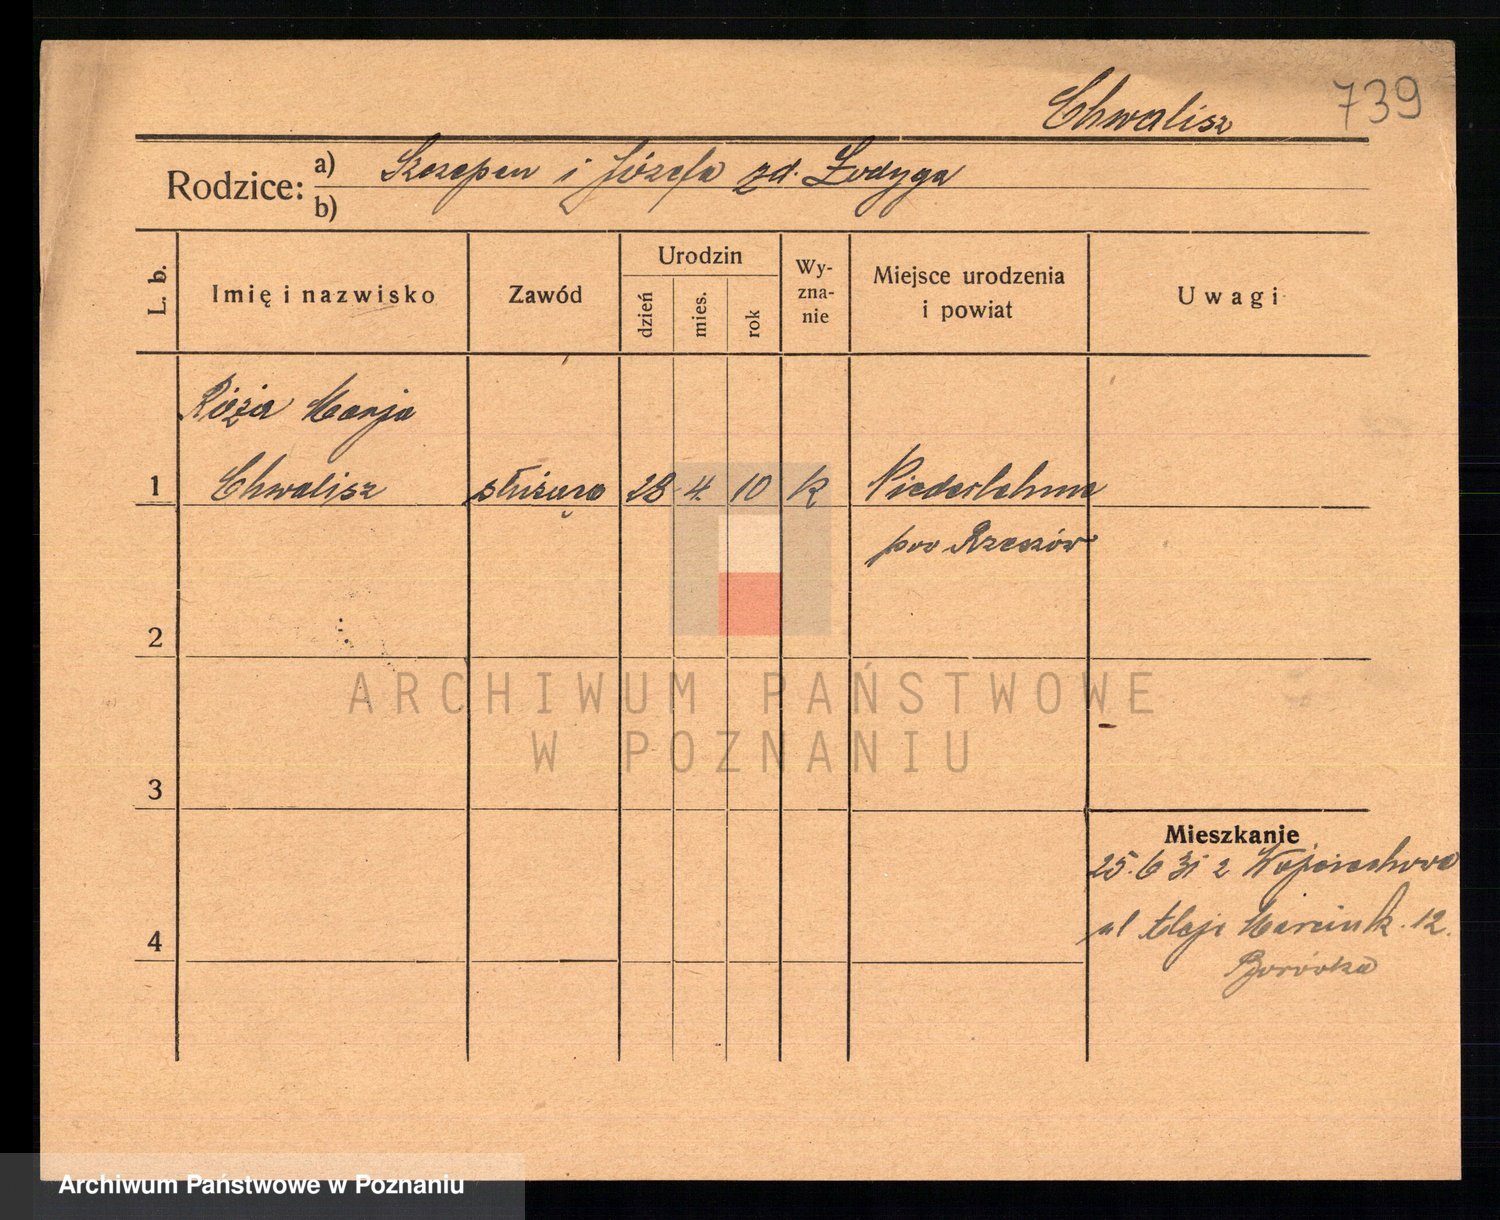 Chwalisz 739
Rodzice: a) Szczepan i Józefa zd. Łodyga
b)
L. b. Imię i nazwisko Zawód Urodzin dzień mies. rok Wyzna-nie Miejsce urodzenia i powiat Uwagi
Róża Marja
1 Chwalisz służąca 28 4. 10 k
pow Rzeszów
2
ARCHIWUM PAŃSTWOWE
W POZNANIU
3
Mieszkanie
25.6 31 z Wojciechowa
ul Aleje Marcink. 12.
4
Borówka
Archiwum Państwowe w Poznaniu